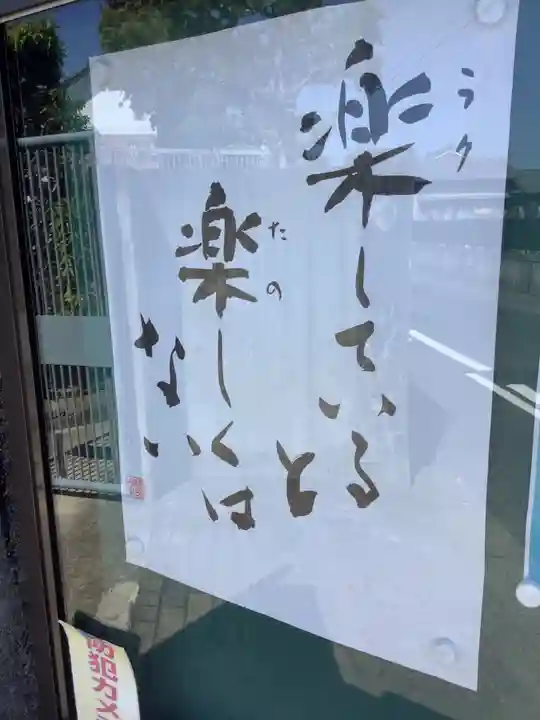 楽している
ラク
と
楽しくは
たの
ない
防犯カメ